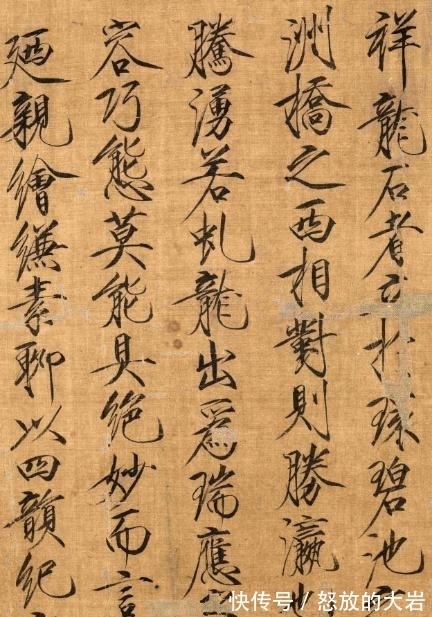 祥龍石者立於環碧池
洲橋之西相對則勝瀛也
騰湧若虬龍出爲瑞應
容巧態莫能具絕妙而言
廼親繪縑素聊以四韻紀
快传号 / 怒放的大岩